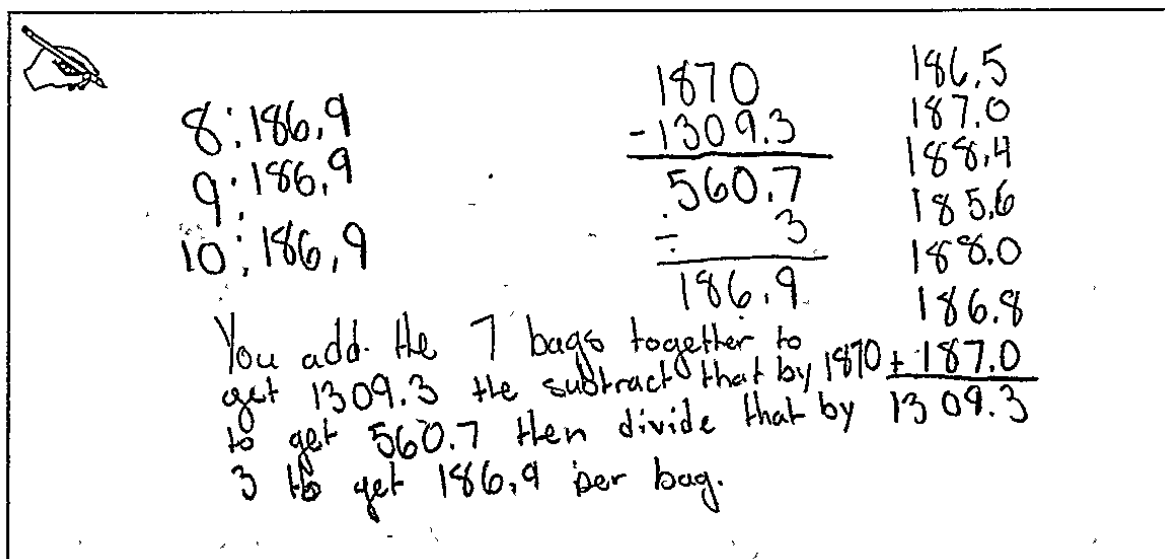 8: 186.9
9: 186.9
10: 186.9
1870
-1309.3
560.7
÷ 3
186.9
186.5
187.0
188.4
185.6
188.0
186.8
+ 187.0
1309.3
You add the 7 bags together to
get 1309.3 the subtract that by 1870
to get 560.7 then divide that by
3 to get 186.9 per bag.